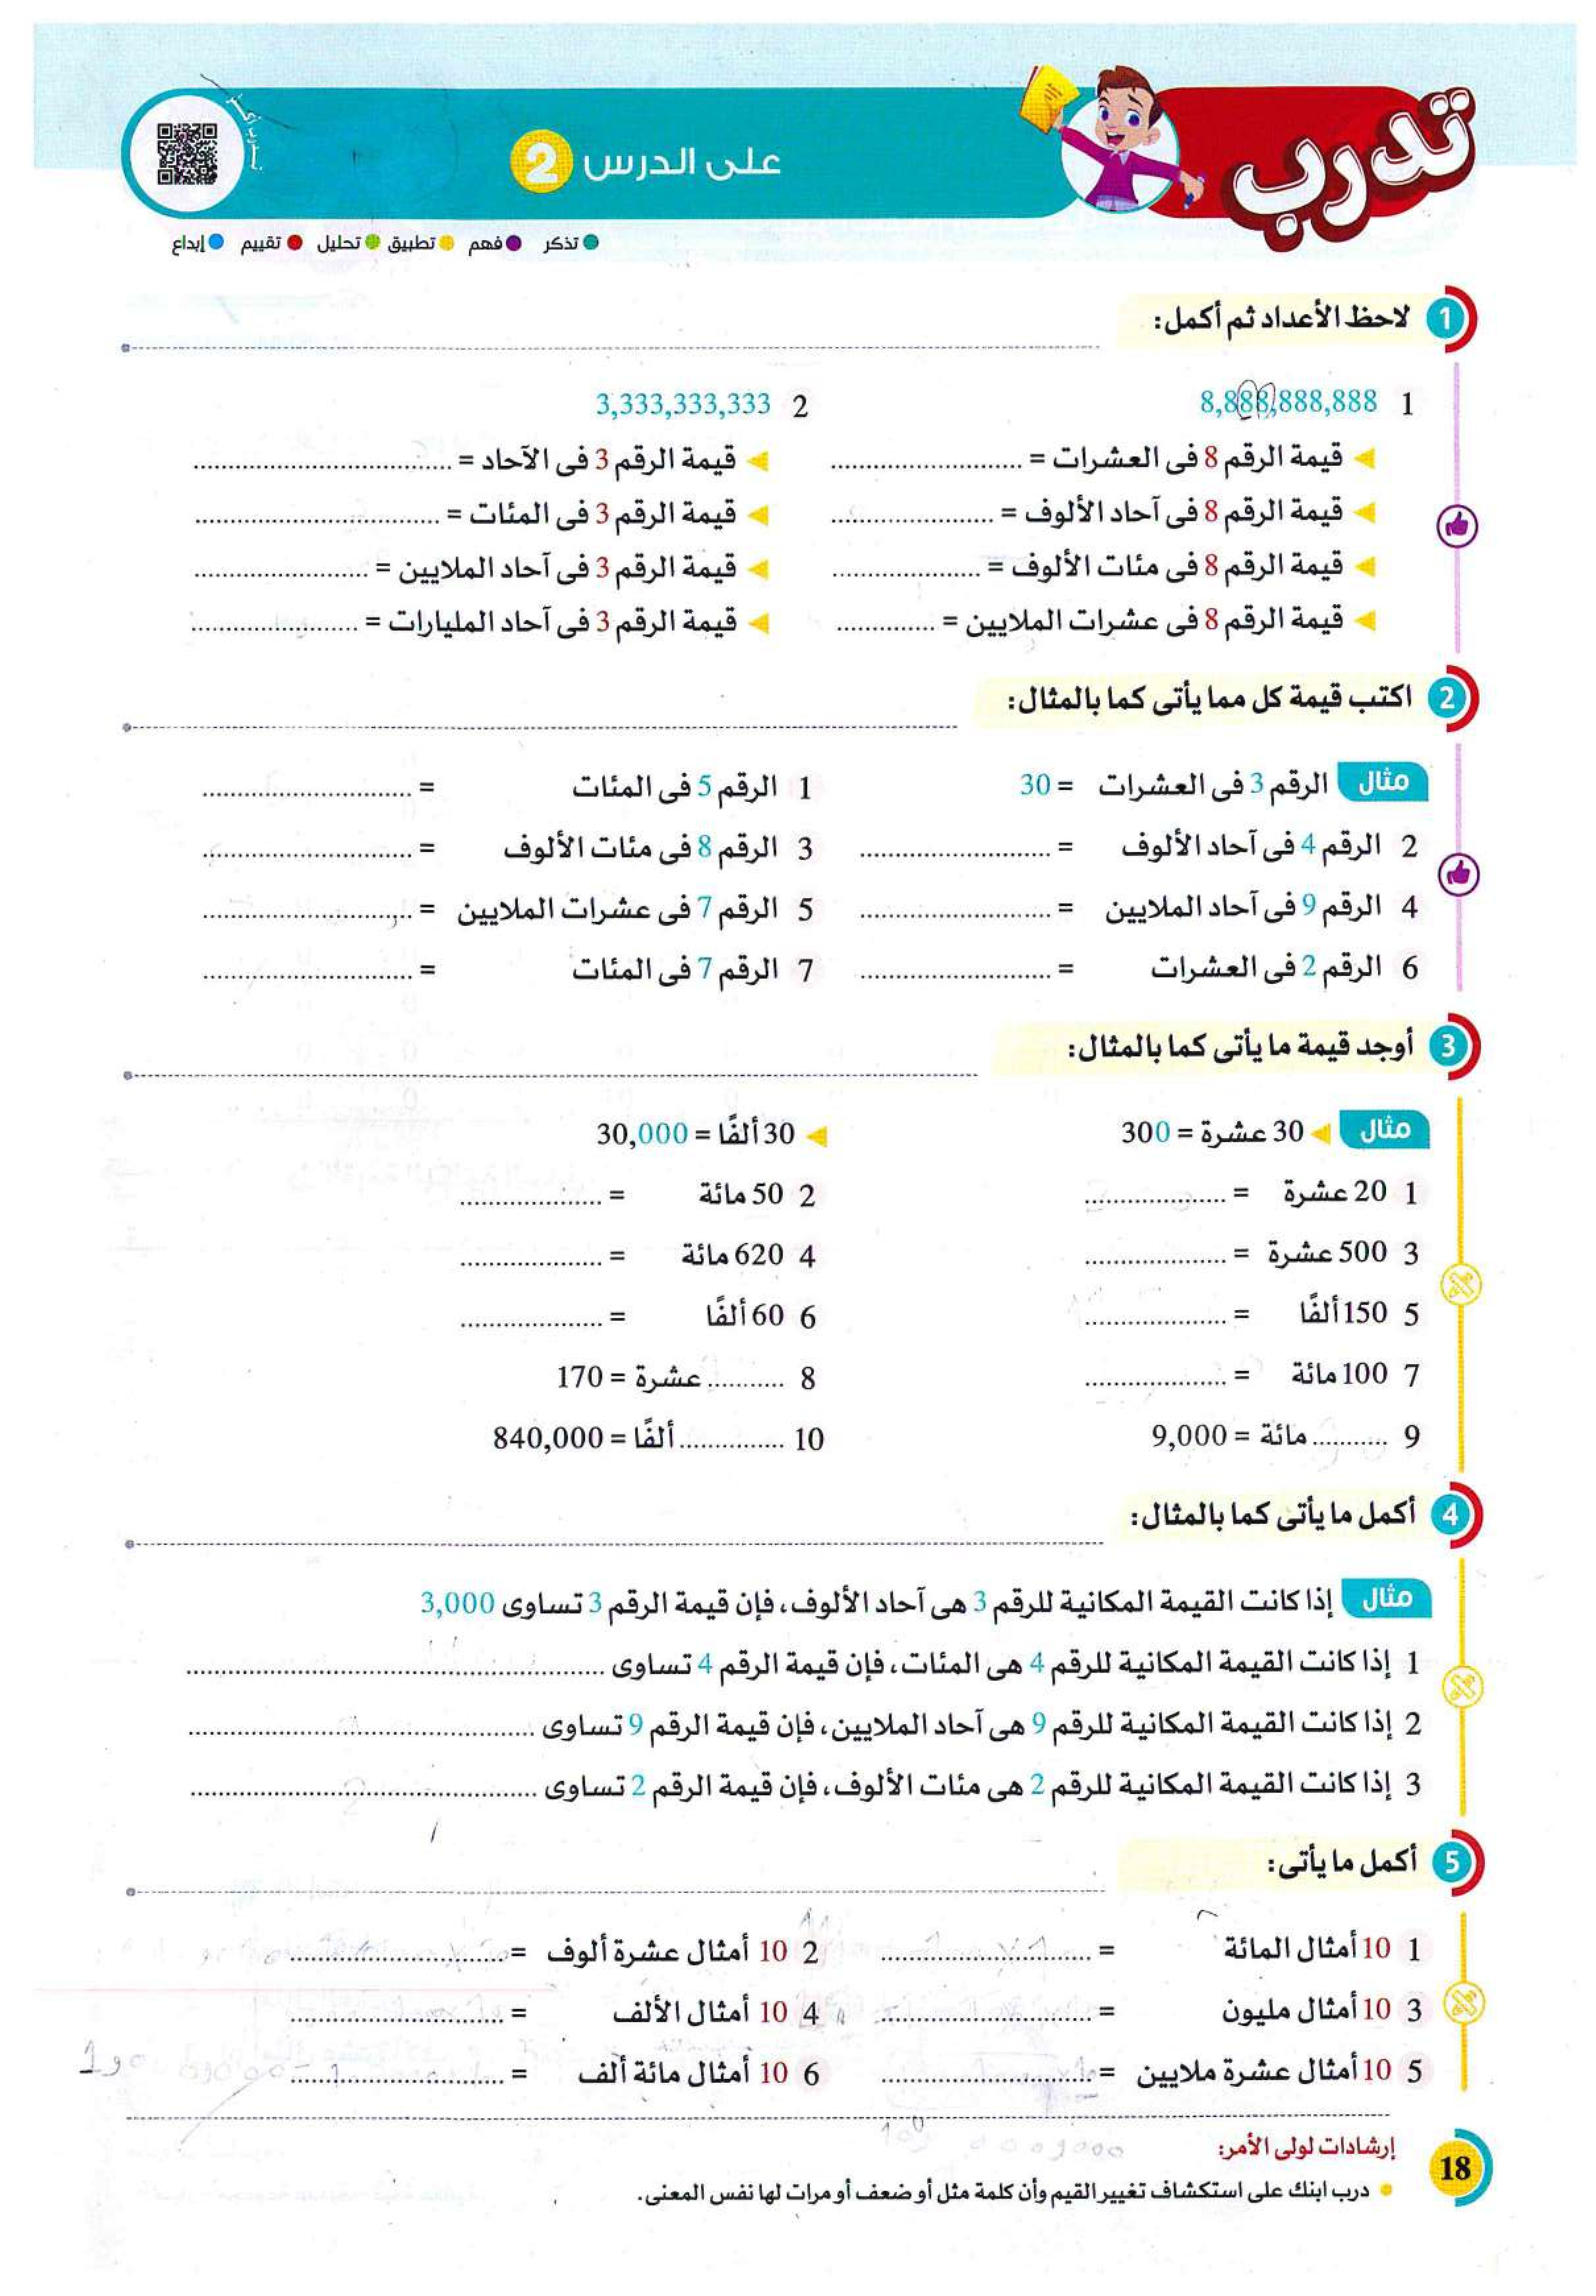 تدرب
على الدرس 2
تذكر فهم تطبيق تحليل تقييم إبداع
1 لاحظ الأعداد ثم أكمل:
1 8,888,888,888
قيمة الرقم 8 فى العشرات = ..........
قيمة الرقم 8 فى آحاد الألوف = ..........
قيمة الرقم 8 فى مئات الألوف = ..........
قيمة الرقم 8 فى عشرات الملايين = ..........
2 3,333,333,333
قيمة الرقم 3 فى الآحاد = ..........
قيمة الرقم 3 فى المئات = ..........
قيمة الرقم 3 فى آحاد الملايين = ..........
قيمة الرقم 3 فى آحاد المليارات = ..........
2 اكتب قيمة كل مما يأتى كما بالمثال:
مثال الرقم 3 فى العشرات = 30
1 الرقم 5 فى المئات = ..........
2 الرقم 4 فى آحاد الألوف = ..........
3 الرقم 8 فى مئات الألوف = ..........
4 الرقم 9 فى آحاد الملايين = ..........
5 الرقم 7 فى عشرات الملايين = ..........
6 الرقم 2 فى العشرات = ..........
7 الرقم 7 فى المئات = ..........
3 أوجد قيمة ما يأتى كما بالمثال:
مثال 30 عشرة = 300
30 ألفًا = 30,000
1 20 عشرة = ..........
2 50 مائة = ..........
3 500 عشرة = ..........
4 620 مائة = ..........
5 150 ألفًا = ..........
6 60 ألفًا = ..........
7 100 مائة = ..........
8 .......... عشرة = 170
9 .......... مائة = 9,000
10 .......... ألفًا = 840,000
4 أكمل ما يأتى كما بالمثال:
مثال إذا كانت القيمة المكانية للرقم 3 هى آحاد الألوف، فإن قيمة الرقم 3 تساوى 3,000
1 إذا كانت القيمة المكانية للرقم 4 هى المئات، فإن قيمة الرقم 4 تساوى ..........
2 إذا كانت القيمة المكانية للرقم 9 هى آحاد الملايين، فإن قيمة الرقم 9 تساوى ..........
3 إذا كانت القيمة المكانية للرقم 2 هى مئات الألوف، فإن قيمة الرقم 2 تساوى ..........
5 أكمل ما يأتى:
1 10 أمثال المائة = ..........
2 10 أمثال عشرة ألوف = ..........
3 10 أمثال مليون = ..........
4 10 أمثال الألف = ..........
5 10 أمثال عشرة ملايين = ..........
6 10 أمثال مائة ألف = ..........
إرشادات لولى الأمر:
درب ابنك على استكشاف تغيير القيم وأن كلمة مثل أو ضعف أو مرات لها نفس المعنى.
18